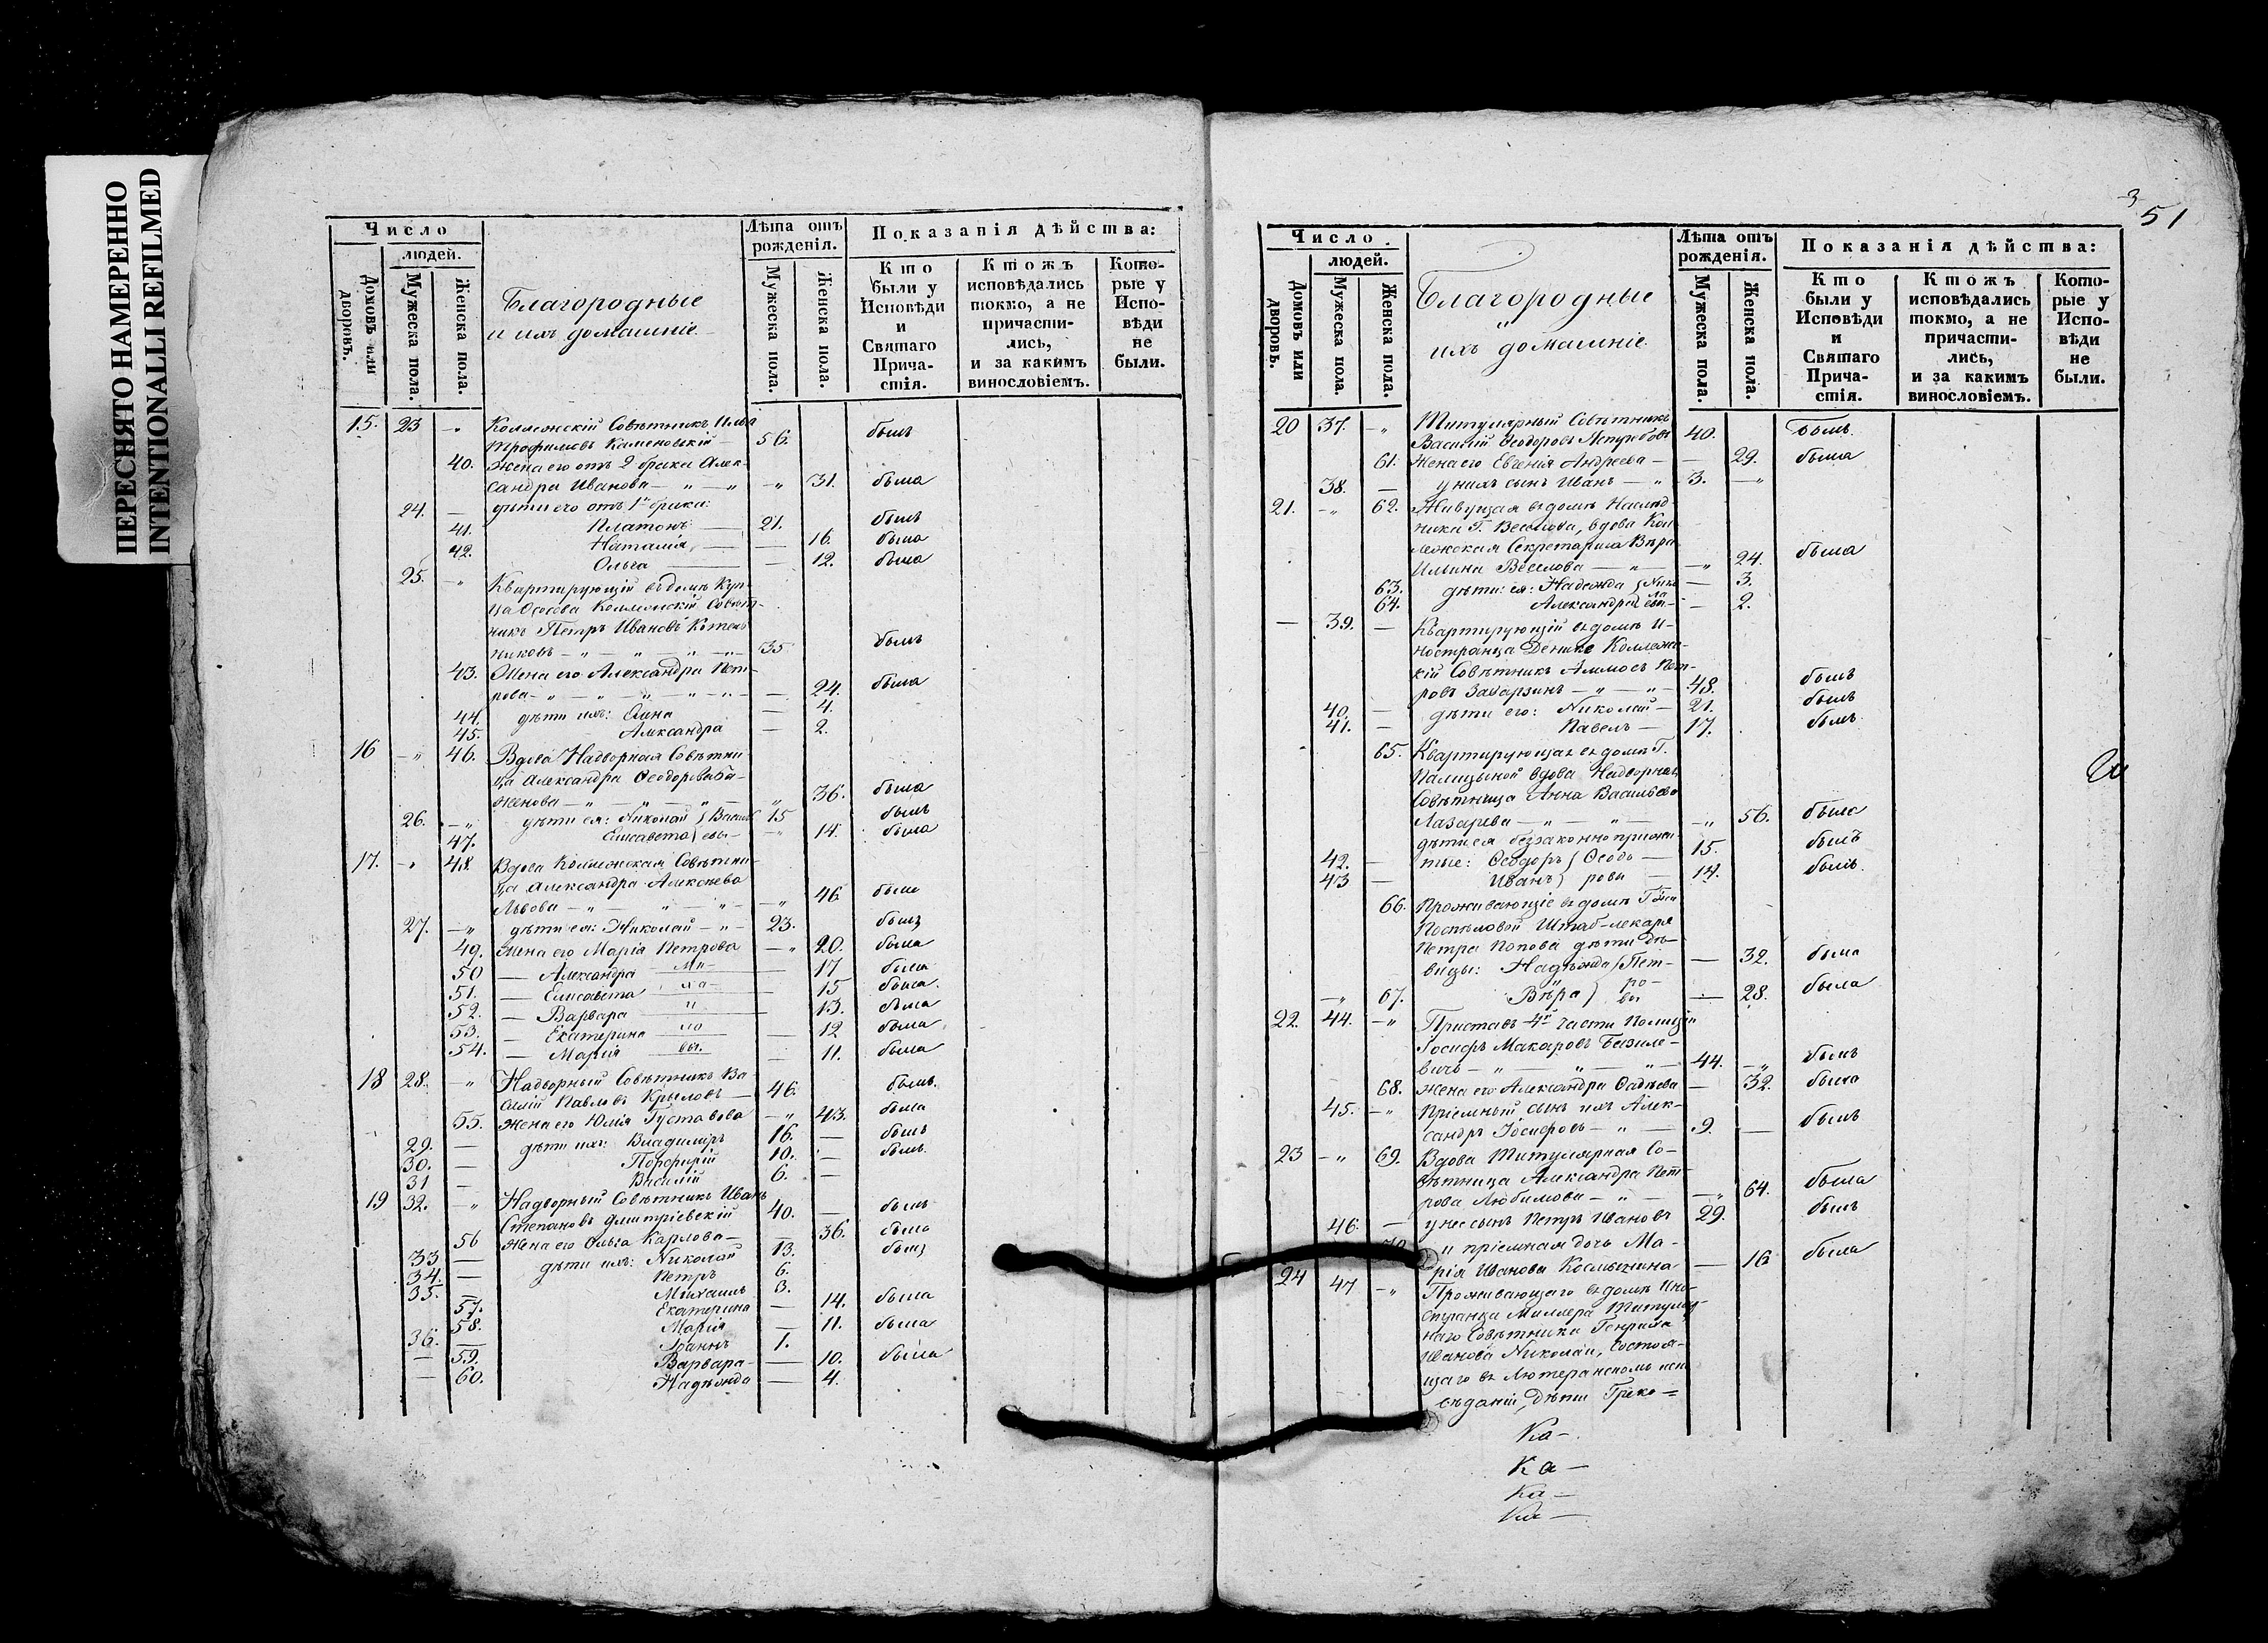 ПЕРЕСНЯТО НАМЕРЕННО
INTENTIONALLI REFILMED
Число
людей.
Домовъ или дворовъ.
Мужеска пола.
Женска пола.
Благородные
и ихъ домашніе
Лѣта отъ рожденія.
Мужеска пола.
Женска пола.
Показанія дѣйства:
Кто были у Исповѣди и Святаго Прича-стія.
Ктожъ исповѣдались токмо, а не причасти-лись, и за какимъ винословіемъ.
Кото-рые у Испо-вѣди не были.
15. 23 -„ Коллежскій Совѣтникъ Илья
Трофимовъ Каменовскій — 56. былъ
40. Жена его отъ 2 брака Алек-
сандра Иванова — „ — „ -„ 31. была
24. — дѣти его отъ 1го брака:
Платонъ — 21. былъ
41. Наталія, — — 16. была
42. Ольга — — 12. была
25. -„ Квартирующій въ домѣ Куп-
ца Ососова Коллежскій Совѣт-
никъ Петръ Ивановъ Котель
никовъ — „ — „ — „ — 35 былъ
43. Жена его Александра Пет-
рова — „ — „ — „ — „ — — 24. была
44. дѣти ихъ: Анна — 4.
45. Александра — 2.
16 -„ 46. Вдова Надворная Совѣтни
ца Александра Ѳеодорова
женова — „ — „ — „ — „ 36. была
26. -„ дѣти ея: Николай } Васил 15 былъ
47. Елисавета } евы — -„ 14. была
17. -„ 48. Вдова Коллежская Совѣтни
ца Александра Алексѣева
Львова — „ — „ — „ — -„ 46 была
27. -„ дѣти ея: Николай — „ — 23. былъ
49. Жена его Марія Петрова -„ 20. была
50 — Александра Ми- — 17 была
51. — Елисавета ха- — 15 была.
52. — Варвара и — 13. была
53. — Екатерина ло — 12 была.
54. — Марія вы. — 11. была
18 28. „ Надворный Совѣтникъ Ва-
силій Павловъ Крыловъ — 46. былъ.
55. Жена его Юлія Густавова -„ 43. была
29. — дѣти ихъ: Владимиръ 16. — былъ
30. — Порфирій 10. — былъ.
31 — Василій 6. —
19 32. -„ Надворный Совѣтникъ Иванъ
Степановъ Дмитріевскій 40. — былъ
56 Жена его Ольга Карлова — — 36. была
33 — дѣти ихъ: Николай 13. былъ
34. — Петръ 6.
35. — Михаилъ 3.
57. Екатерина — 14. была
58. Марія — 11. была
36. — Іоаннъ 1.
— 59. Варвара — — 10. была
— 60. Надежда — 4.
3
51
Число
людей.
Домовъ или дворовъ.
Мужеска пола.
Женска пола.
Благородные
и
ихъ домашніе.
Лѣта отъ рожденія.
Мужеска пола.
Женска пола.
Показанія дѣйства:
Кто были у Исповѣди и Святаго Прича-стія.
Ктожъ исповѣдались токмо, а не причасти-лись, и за какимъ винословіемъ.
Кото-рые у Испо-вѣди не были.
20 37. -„ Титулярный Совѣтникъ
Василій Ѳеодоровъ Ястребовъ 40. Былъ.
61. Жена его Евгенія Андреева — — 29. была
38. — у нихъ сынъ Иванъ — „ 3. -„
21. -„ 62. Живущая въ домѣ Наслѣд-
никъ Г. Веселова, вдова Кол-
лежская Секретарша Вѣра
Ильина Веселова — „ — -„ 24. была
63. дѣти ея: Надежда } Ник — 3.
64. Александра } лаевы — — 2.
— 39. — Квартирующій въ домѣ И-
ностранца Денике Коллежс-
кій Совѣтникъ Аммосъ Пет-
ровъ Захарзинъ — „ — „ 48. былъ
40. — дѣти его: Николай — 21. былъ
41. — Павелъ — 17. былъ.
65. Квартирующая въ домѣ Г.
Палицыной вдова Надворная
Совѣтница Анна Васильева
Лазарева — „ — „ — -„ 56. была
дѣти ея беззаконно прижи-
42. — тые: Ѳеодоръ } Ѳеодо — 15. былъ
43 — Иванъ } ровы — 14. былъ.
66. Проживающіе въ домѣ Гжи
Поспѣловой Штаб-лекаря
Петра Попова дѣти дѣ-
вицы: Надежда } Пет- — 32. была
-„ 67. Вѣра } ро-вы — 28. была
22. 44. -„ Приставъ 4й части Полиціи
Іосифъ Макаровъ Базиле-
вичъ — „ — „ — „ — 44. -„ былъ
68. Жена его Александра Ѳадѣева — 32. была
45. -„ Пріемный сынъ ихъ Алек-
сандръ Іосифовъ — „ — 9. — былъ
23 -„ 69. Вдова Титулярная Со-
вѣтница Александра Пет-
рова Любимова — „ — -„ 64. была
46 — у нее сынъ Петръ Ивановъ 29. былъ
70. и пріемная дочь Ма-
рія Иванова — 16 была
24 47 -„ Проживающаго въ домѣ Ино-
странца Миллера Титуляр-
наго Совѣтника Генриха
Иванова Николаи, состоя-
щаго въ Лютеранскомъ испо
вѣданіи, дѣти Греко =
Ка-
Ка-
Ка-
Ка-